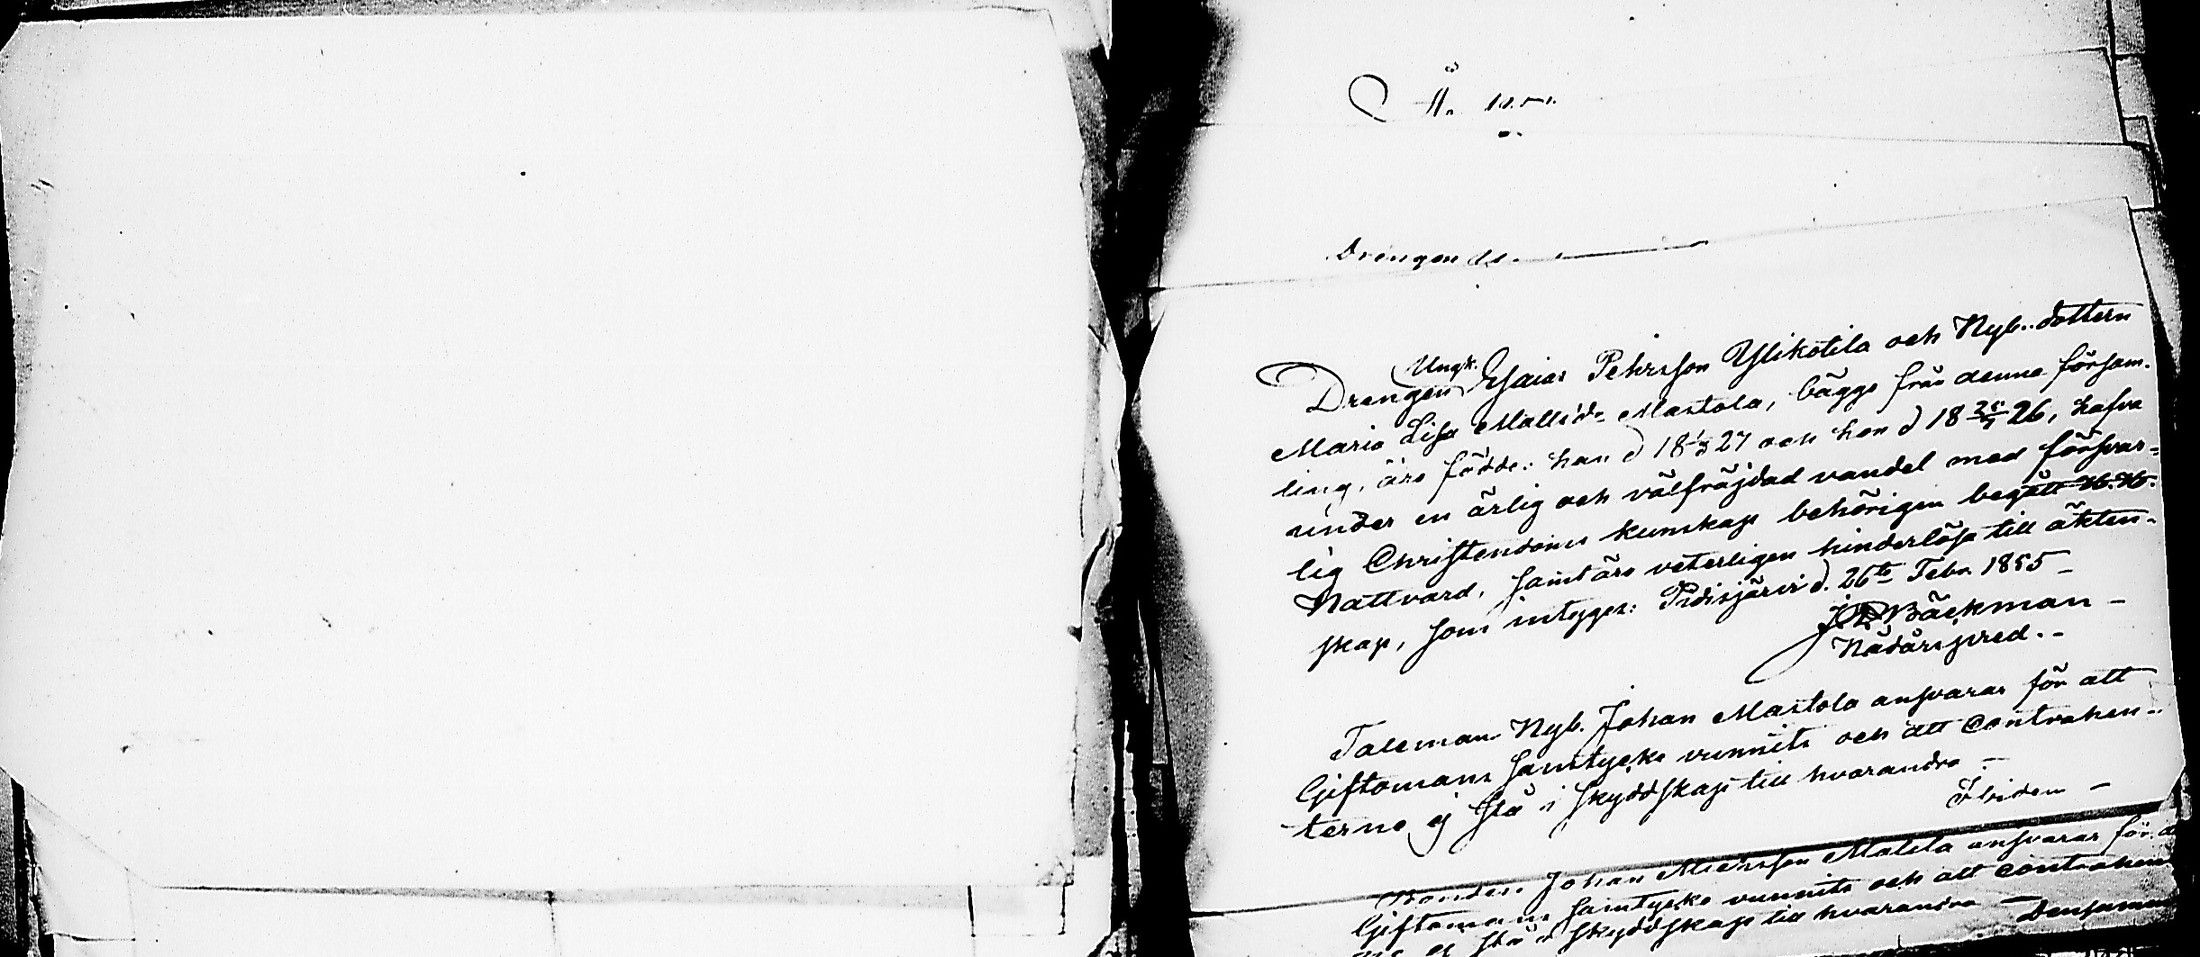 Drengen
Ungk.
Drengen Esaias Pehrsson Ylikotila och Nyb. dottern
Maria Lisa Mattsdr Mastola, bägge från denna försam-
ling, äro födde: han d 18 1/3 27 och hon d 18 26, hafva
under en ärlig och välfräjdad vandel med försvar-
lig Christendoms kunskap behörigen begått H. H.
Nattvard, samt äro veterligen hinderlösa till äkten-
skap, som intygges: Pidisjärvi d. 26te Febr. 1855
Bäckman
Nådårspred.
Taleman Nyb. Johan Mastola ansvarar för att
Giftomans samtycke vunnits och att Contrahen-
terne ej stå i skyddskap till hvarandra
Ibidem
Bonden Johan Mickelsson Matila ansvarar för
Giftomans samtycke vunnits och att Contrahen
ej stå i skyddskap till hvarandra
Densamme